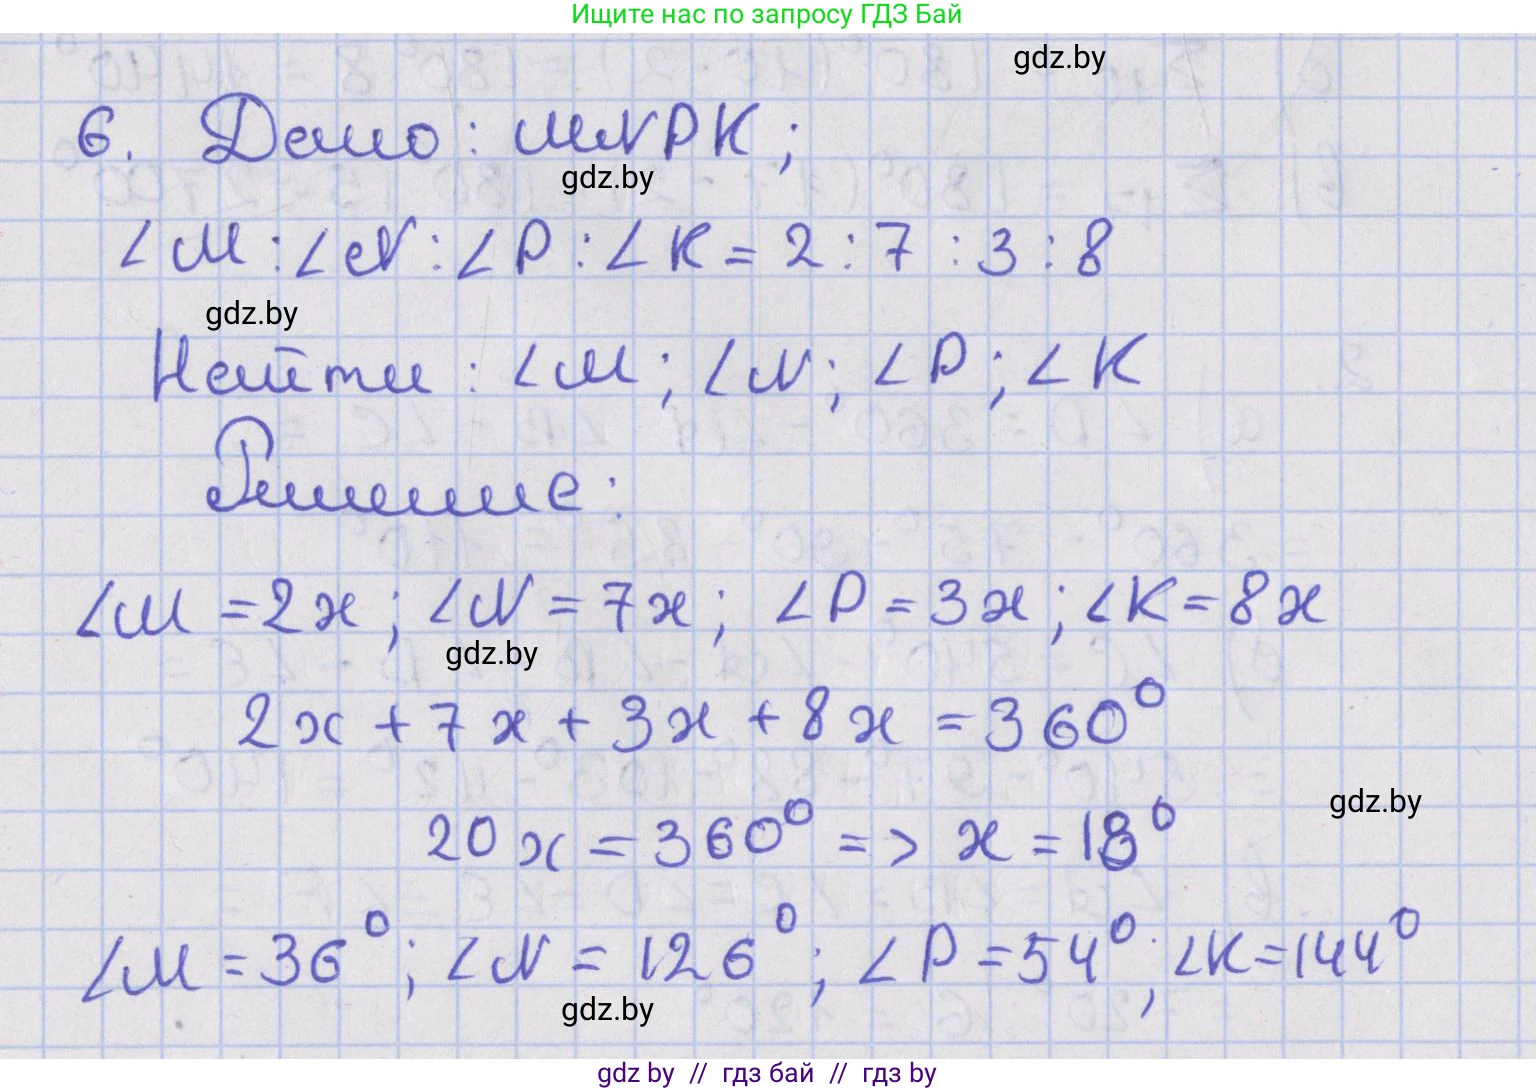 Ищите нас по запросу ГДЗ Бай
gdz.by
6. Дано: MNPK;
gdz.by
∠M:∠N:∠P:∠K=2:7:3:8
gdz.by
Найти: ∠M; ∠N; ∠P; ∠K
Решение:
∠M=2x; ∠N=7x; ∠P=3x; ∠K=8x
gdz.by
2x+7x+3x+8x=360°
gdz.by
20x=360° => x=18°
∠M=36°; ∠N=126°; ∠P=54°; ∠K=144°
gdz.by
gdz by // гдз бай // гдз by